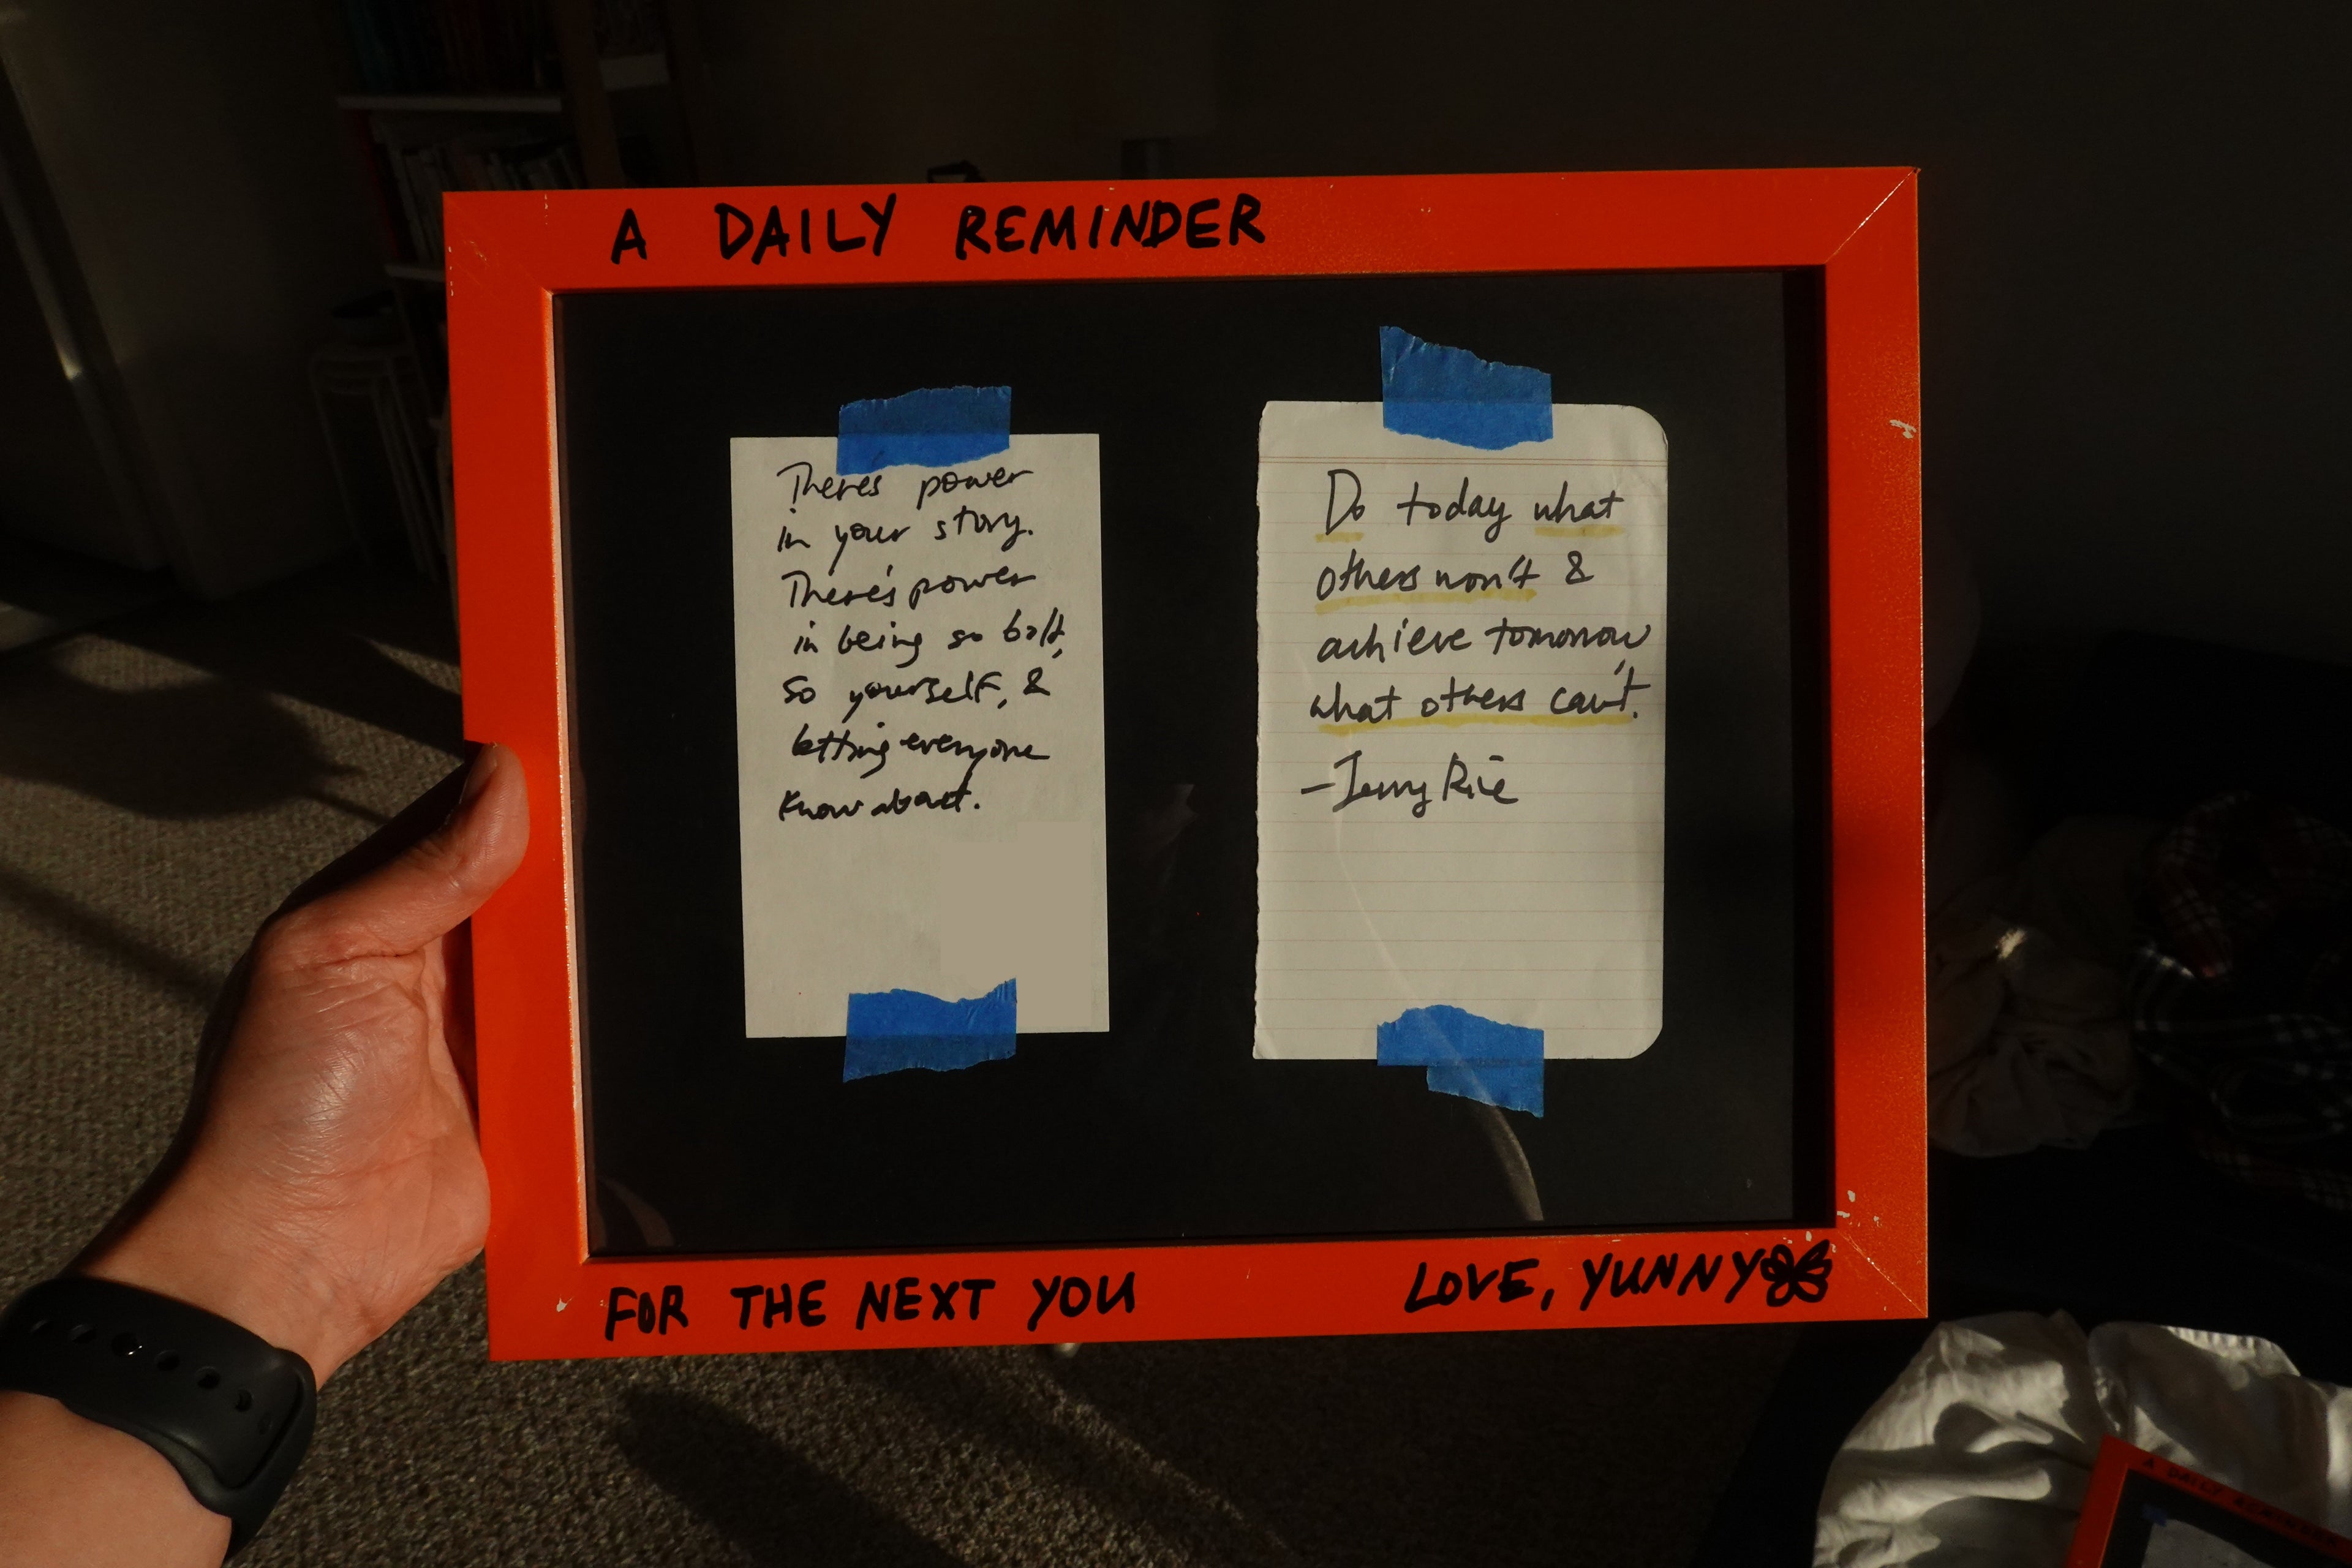 A DAILY REMINDER
There's power
in your story.
There's power
in being so bold,
so yourself, &
letting everyone
know about.
Do today what
others won't &
achieve tomorrow
what others can't.
—Jerry Rice
FOR THE NEXT YOU
LOVE, YUNNY
A DAILY REMINDER